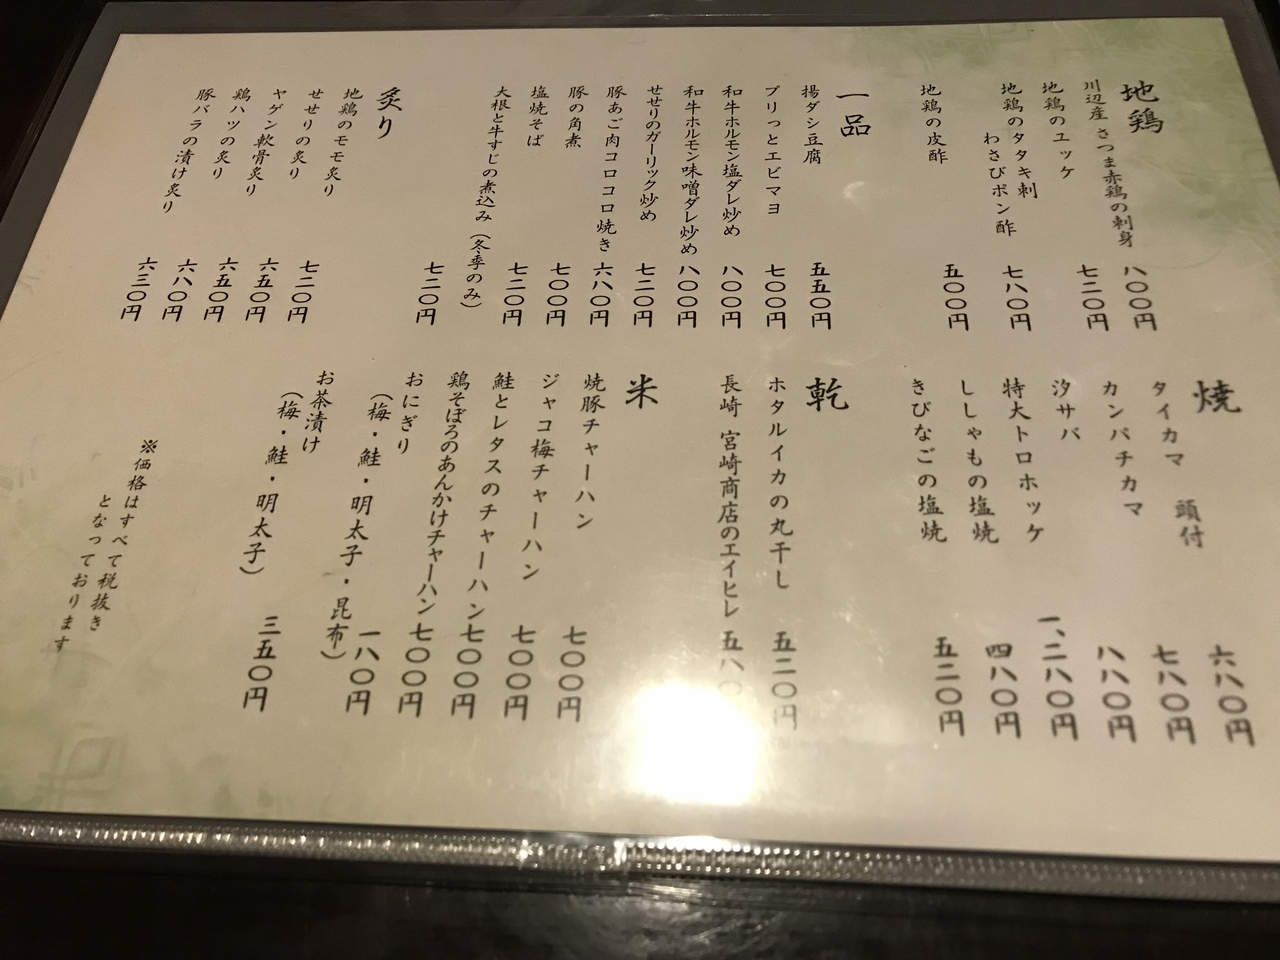 地鶏
川辺産 さつま赤鶏の刺身 八〇〇円
地鶏のユッケ 七二〇円
地鶏のタタキ刺
わさびポン酢 七八〇円
地鶏の皮酢 五〇〇円
一品
揚ダシ豆腐 五五〇円
プリっとエビマヨ 七〇〇円
和牛ホルモン塩ダレ炒め 八〇〇円
和牛ホルモン味噌ダレ炒め 八〇〇円
せせりのガーリック炒め 七二〇円
豚あご肉コロコロ焼き 六八〇円
豚の角煮 七〇〇円
塩焼そば 七二〇円
大根と牛すじの煮込み(冬季のみ) 七二〇円
炙り
地鶏のモモ炙り 七二〇円
せせりの炙り 六五〇円
ヤゲン軟骨炙り 六五〇円
鶏ハツの炙り 六八〇円
豚バラの漬け炙り 六三〇円
焼
タイカマ 頭付 六八〇円
カンパチカマ 七八〇円
汐サバ 八八〇円
特大トロホッケ 一、二八〇円
ししゃもの塩焼 四八〇円
きびなごの塩焼 五二〇円
乾
ホタルイカの丸干し 五二〇円
長崎 宮崎商店のエイヒレ 五八〇
米
焼豚チャーハン 七〇〇円
ジャコ梅チャーハン 七〇〇円
鮭とレタスのチャーハン 七〇〇円
鶏そぼろのあんかけチャーハン 七〇〇円
おにぎり
(梅・鮭・明太子・昆布) 一八〇円
お茶漬け
(梅・鮭・明太子) 三五〇円
※価格はすべて税抜き
となっております